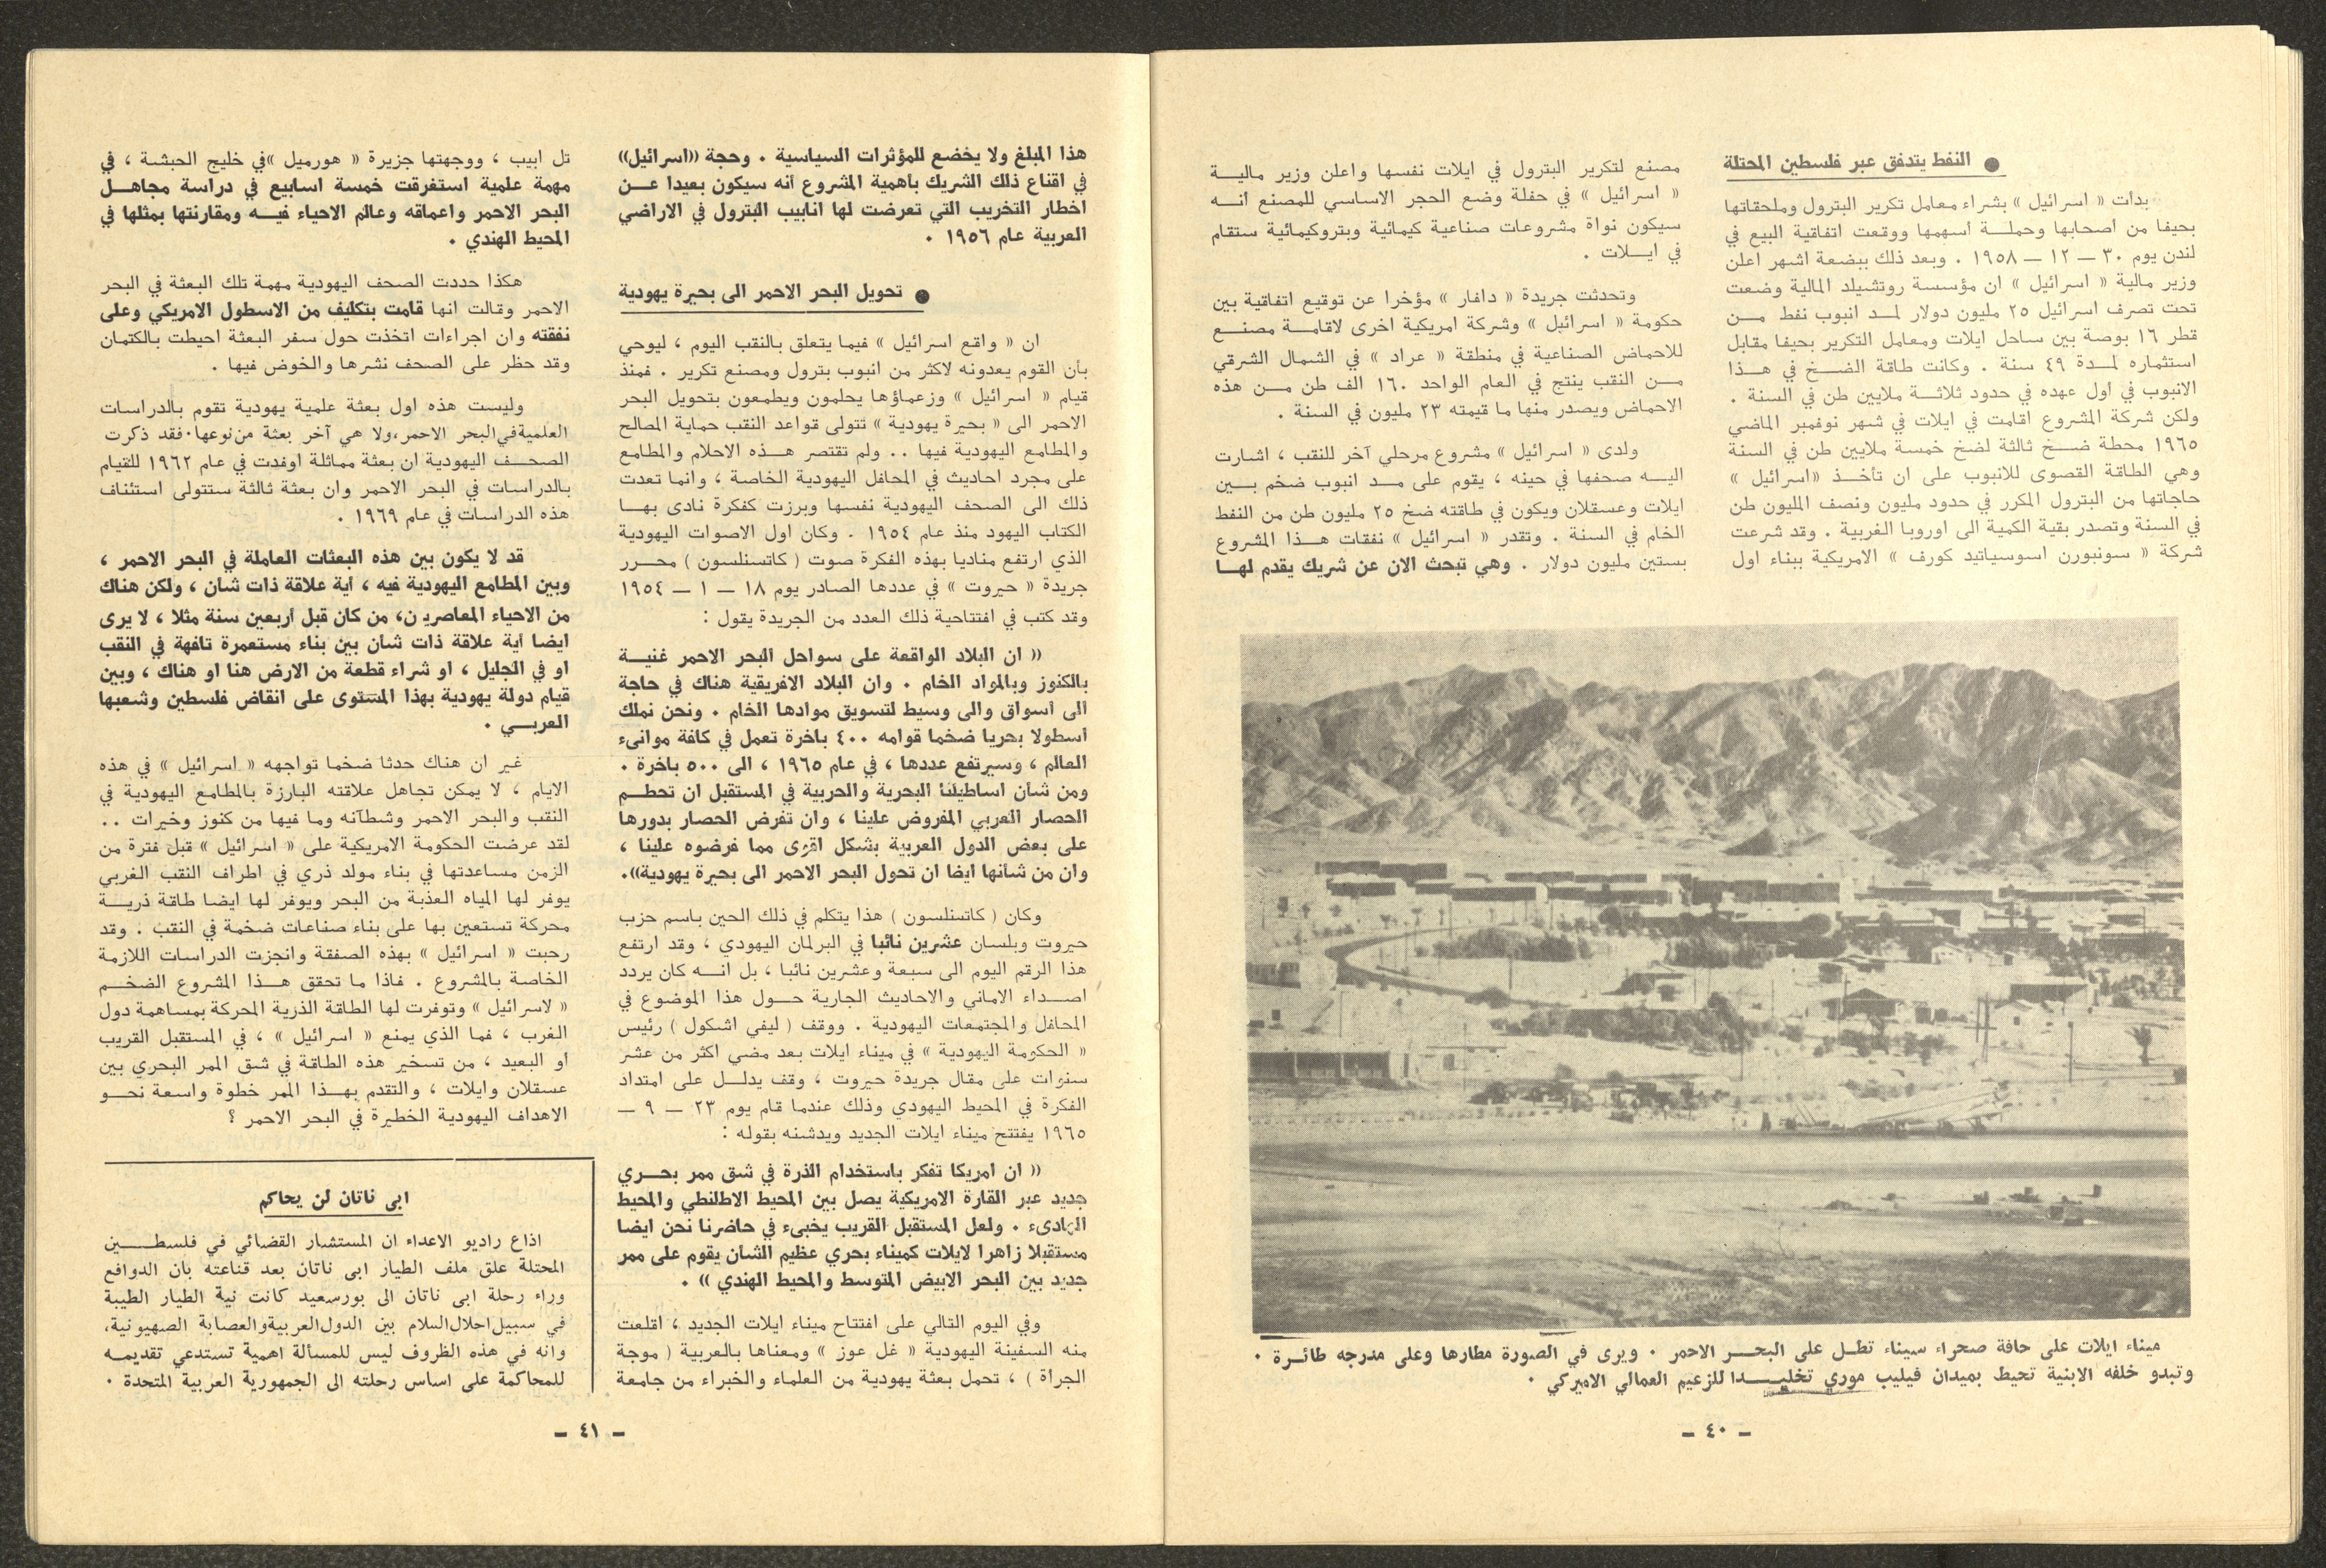 ● النفط يتدفق عبر فلسطين المحتلة
بدأت « اسرائيل » بشراء معامل تكرير البترول وملحقاتها
بحيفا من اصحابها وحملـــة أسهمها ووقعت اتفاقية البيع في
لندن يوم ٣٠ — ١٢ — ١٩٥٨ . وبعد ذلك ببضعة اشهر اعلن
وزير مالية « اسرائيل » ان مؤسسة روتشيلد المالية وضعت
تحت تصرف اسرائيل ٢٥ مليون دولار لمــد انبوب نفط مــن
قطر ١٦ بوصة بين ساحل ايلات ومعامل التكرير بحيفا مقابل
استثماره لمــدة ٤٩ سنة . وكانت طاقة الضــخ في هــذا
الانبوب في أول عهده في حدود ثلاثــة ملايين طن في السنة .
ولكن شركة المشروع اقامت في ايلات في شهر نوفمبر الماضي
١٩٦٥ محطة ضــخ ثالثة لضخ خمسة ملايين طن في السنة
وهي الطاقة القصوى للانبوب على ان تأخــذ «اسرائيل »
حاجاتها من البترول المكرر في حدود مليون ونصف المليون طن
في السنة وتصدر بقية الكمية الى اوروبا الغربية . وقد شرعت
شركة « سونبورن اسوسياتيد كورف » الامريكية ببناء اول
مصنع لتكرير البترول في ايلات نفسها واعلن وزير ماليــة
« اسرائيل » في حفلة وضع الحجر الاساسي للمصنع انــه
سيكون نواة مشروعات صناعية كيمائية وبتروكيمائية ستقام
في ايــلات .
وتحدثت جريدة « دافار » مؤخرا عن توقيع اتفاقية بين
حكومة « اسرائيل » وشركة امريكية اخرى لاقامــة مصنــع
للاحماض الصناعية في منطقة « عراد » في الشمال الشرقي
مــن النقب ينتج في العام الواحد ١٦٠ الف طن مــن هذه
الاحماض ويصدر منها ما قيمته ٢٣ مليون في السنة .
ولدى « اسرائيل » مشروع مرحلي آخر للنقب ، اشارت
اليــه صحفها في حينه ، يقوم على مــد انبوب ضخم بــين
ايلات وعسقلان ويكون في طاقته ضخ ٢٥ مليون طن من النفط
الخام في السنة . وتقدر « اسرائيل » نفقات هــذا المشروع
بستين مليون دولار . وهي تبحث الان عن شريك يقدم لهــا
ميناء ايلات على حافة صحراء سيناء تطــل على البحــر الاحمر . ويرى في الصورة مطارها وعلى مدرجه طائــرة .
وتبدو خلفه الابنية تحيط بميدان فيليب موري تخليــدا للزعيم العمالي الاميركي .
— ٤٠ —
هذا المبلغ ولا يخضع للمؤثرات السياسية . وحجة «اسرائيل»
في اقناع ذلك الشريك بأهمية المشروع أنه سيكون بعيدا عــن
اخطار التخريب التي تعرضت لها انابيب البترول في الاراضي
العربية عام ١٩٥٦ .
● تحويل البحر الاحمر الى بحيرة يهودية
ان « واقع اسرائيل » فيما يتعلق بالنقب اليوم ، ليوحي
بأن القوم يعدونه لاكثر من انبوب بترول ومصنع تكرير . فمنذ
قيام « اسرائيل » وزعماؤها يحلمون ويطمعون بتحويل البحر
الاحمر الى « بحيرة يهودية » تتولى قواعد النقب حماية المصالح
والمطامع اليهودية فيها .. ولم تقتصر هــذه الاحلام والمطامع
على مجرد احاديث في المحافل اليهودية الخاصة ، وانما تعدت
ذلك الى الصحف اليهودية نفسها وبرزت كفكرة نادى بهــا
الكتاب اليهود منذ عام ١٩٥٤ . وكان اول الاصوات اليهودية
الذي ارتفع مناديا بهذه الفكرة صوت ( كاتسنلسون ) محــرر
جريدة « حيروت » في عددها الصادر يوم ١٨ — ١ — ١٩٥٤
وقد كتب في افتتاحية ذلك العدد من الجريدة يقول :
« ان البلاد الواقعة على سواحل البحر الاحمر غنيــة
بالكنوز وبالمواد الخام . وان البلاد الافريقية هناك في حاجة
الى أسواق والى وسيط لتسويق موادها الخام . ونحن نملك
أسطولا بحريا ضخما قوامه ٤٠٠ باخرة تعمل في كافة موانىء
العالم ، وسيرتفع عددها ، في عام ١٩٦٥ ، الى ٥٠٠ باخرة .
ومن شأن اساطيلنا البحرية والحربية في المستقبل ان تحطــم
الحصار العربي المفروض علينا ، وان تفرض الحصار بدورها
على بعض الدول العربية بشكل اقوى مما فرضوه علينا ،
وان من شأنها ايضا ان تحول البحر الاحمر الى بحيرة يهودية».
وكان ( كاتسنلسون ) هذا يتكلم في ذلك الحين باسم حزب
حيروت وبلسان عشرين نائبا في البرلمان اليهودي ، وقد ارتفع
هذا الرقم اليوم الى سبعة وعشرين نائبا ، بل انــه كان يردد
اصــداء الاماني والاحاديث الجارية حــول هذا الموضوع في
المحافل والمجتمعات اليهودية . ووقف ( ليفي اشكول ) رئيس
« الحكومة اليهودية » في ميناء ايلات بعد مضي اكثر من عشر
سنوات على مقال جريدة حيروت ، وقف يدلــل على امتداد
الفكرة في المحيط اليهودي وذلك عندما قام يوم ٢٣ — ٩ —
١٩٦٥ يفتتح ميناء ايلات الجديد ويدشنه بقوله :
« ان امريكا تفكر باستخدام الذرة في شق ممر بحــري
جديد عبر القارة الامريكية يصل بين المحيط الاطلنطي والمحيط
الهادىء . ولعل المستقبل القريب يخبىء في حاضرنا نحن ايضا
مستقبلا زاهرا لايلات كميناء بحري عظيم الشأن يقوم على ممر
جديد بين البحر الابيض المتوسط والمحيط الهندي » .
وفي اليوم التالي على افتتاح ميناء ايلات الجديد ، اقلعت
منه السفينة اليهودية « غل عوز » ومعناها بالعربية ( موجة
الجرأة ) ، تحمل بعثة يهودية من العلماء والخبراء من جامعة
تل ابيب ، ووجهتها جزيرة « هورميل »في خليج الحبشة ، في
مهمة علمية استغرقت خمسة اسابيع في دراسة مجاهــل
البحر الاحمر واعماقه وعالم الاحياء فيــه ومقارنتها بمثلها في
المحيط الهندي .
هكذا حددت الصحف اليهودية مهمة تلك البعثة في البحر
الاحمر وقالت انها قامت بتكليف من الاسطول الامريكي وعلى
نفقته وان اجراءات اتخذت حول سفر البعثة احيطت بالكتمان
وقد حظر على الصحف نشرها والخوض فيها .
وليست هذه اول بعثة علمية يهودية تقوم بالدراسات
العلمية في البحر الاحمر،ولا هي آخر بعثة من نوعها.فقد ذكرت
الصحــف اليهودية ان بعثة مماثلة اوفدت في عام ١٩٦٢ للقيام
بالدراسات في البحر الاحمر وان بعثة ثالثة ستتولى استئناف
هذه الدراسات في عام ١٩٦٩ .
قد لا يكون بين هذه البعثات العاملة في البحر الاحمر ،
وبين المطامع اليهودية فيه ، أية علاقة ذات شأن ، ولكن هناك
من الاحياء المعاصرين، من كان قبل أربعين سنة مثلا ، لا يرى
ايضا أية علاقة ذات شأن بين بناء مستعمرة تافهة في النقب
او في الجليل ، او شراء قطعة من الارض هنا او هناك ، وبين
قيام دولة يهودية بهذا المستوى على انقاض فلسطين وشعبها
العربــي .
غير ان هناك حدثا ضخما تواجهه « اسرائيل » في هذه
الايام ، لا يمكن تجاهل علاقته البارزة بالمطامع اليهودية في
النقب والبحر الاحمر وشطآنه وما فيها من كنوز وخيرات ..
لقد عرضت الحكومة الامريكية على « اسرائيل » قبل فترة من
الزمن مساعدتها في بناء مولد ذري في اطراف النقب الغربي
يوفر لها المياه العذبة من البحر ويوفر لها ايضا طاقة ذريــة
محركة تستعين بها على بناء صناعات ضخمة في النقب . وقد
رحبت « اسرائيل » بهذه الصفقة وانجزت الدراسات اللازمة
الخاصة بالمشروع . فاذا ما تحقق هــذا المشروع الضخــم
« لاسرائيل » وتوفرت لها الطاقة الذرية المحركة بمساهمة دول
الغرب ، فما الذي يمنع « اسرائيل » ، في المستقبل القريب
أو البعيد ، من تسخير هذه الطاقة في شق الممر البحري بين
عسقلان وايلات ، والتقدم بهــذا الممر خطوة واسعة نحــو
الاهداف اليهودية الخطيرة في البحر الاحمر ؟
ابى ناتان لن يحاكم
اذاع راديو الاعداء ان المستشار القضائي في فلسطــين
المحتلة علق ملف الطيار ابى ناتان بعد قناعته بان الدوافع
وراء رحلة ابى ناتان الى بورسعيد كانت نية الطيار الطيبة
في سبيل احلال السلام بين الدول العربية والعصابة الصهيونية،
وانه في هذه الظروف ليس للمسألة اهمية تستدعي تقديمــه
للمحاكمة على اساس رحلته الى الجمهورية العربية المتحدة .
— ٤١ —